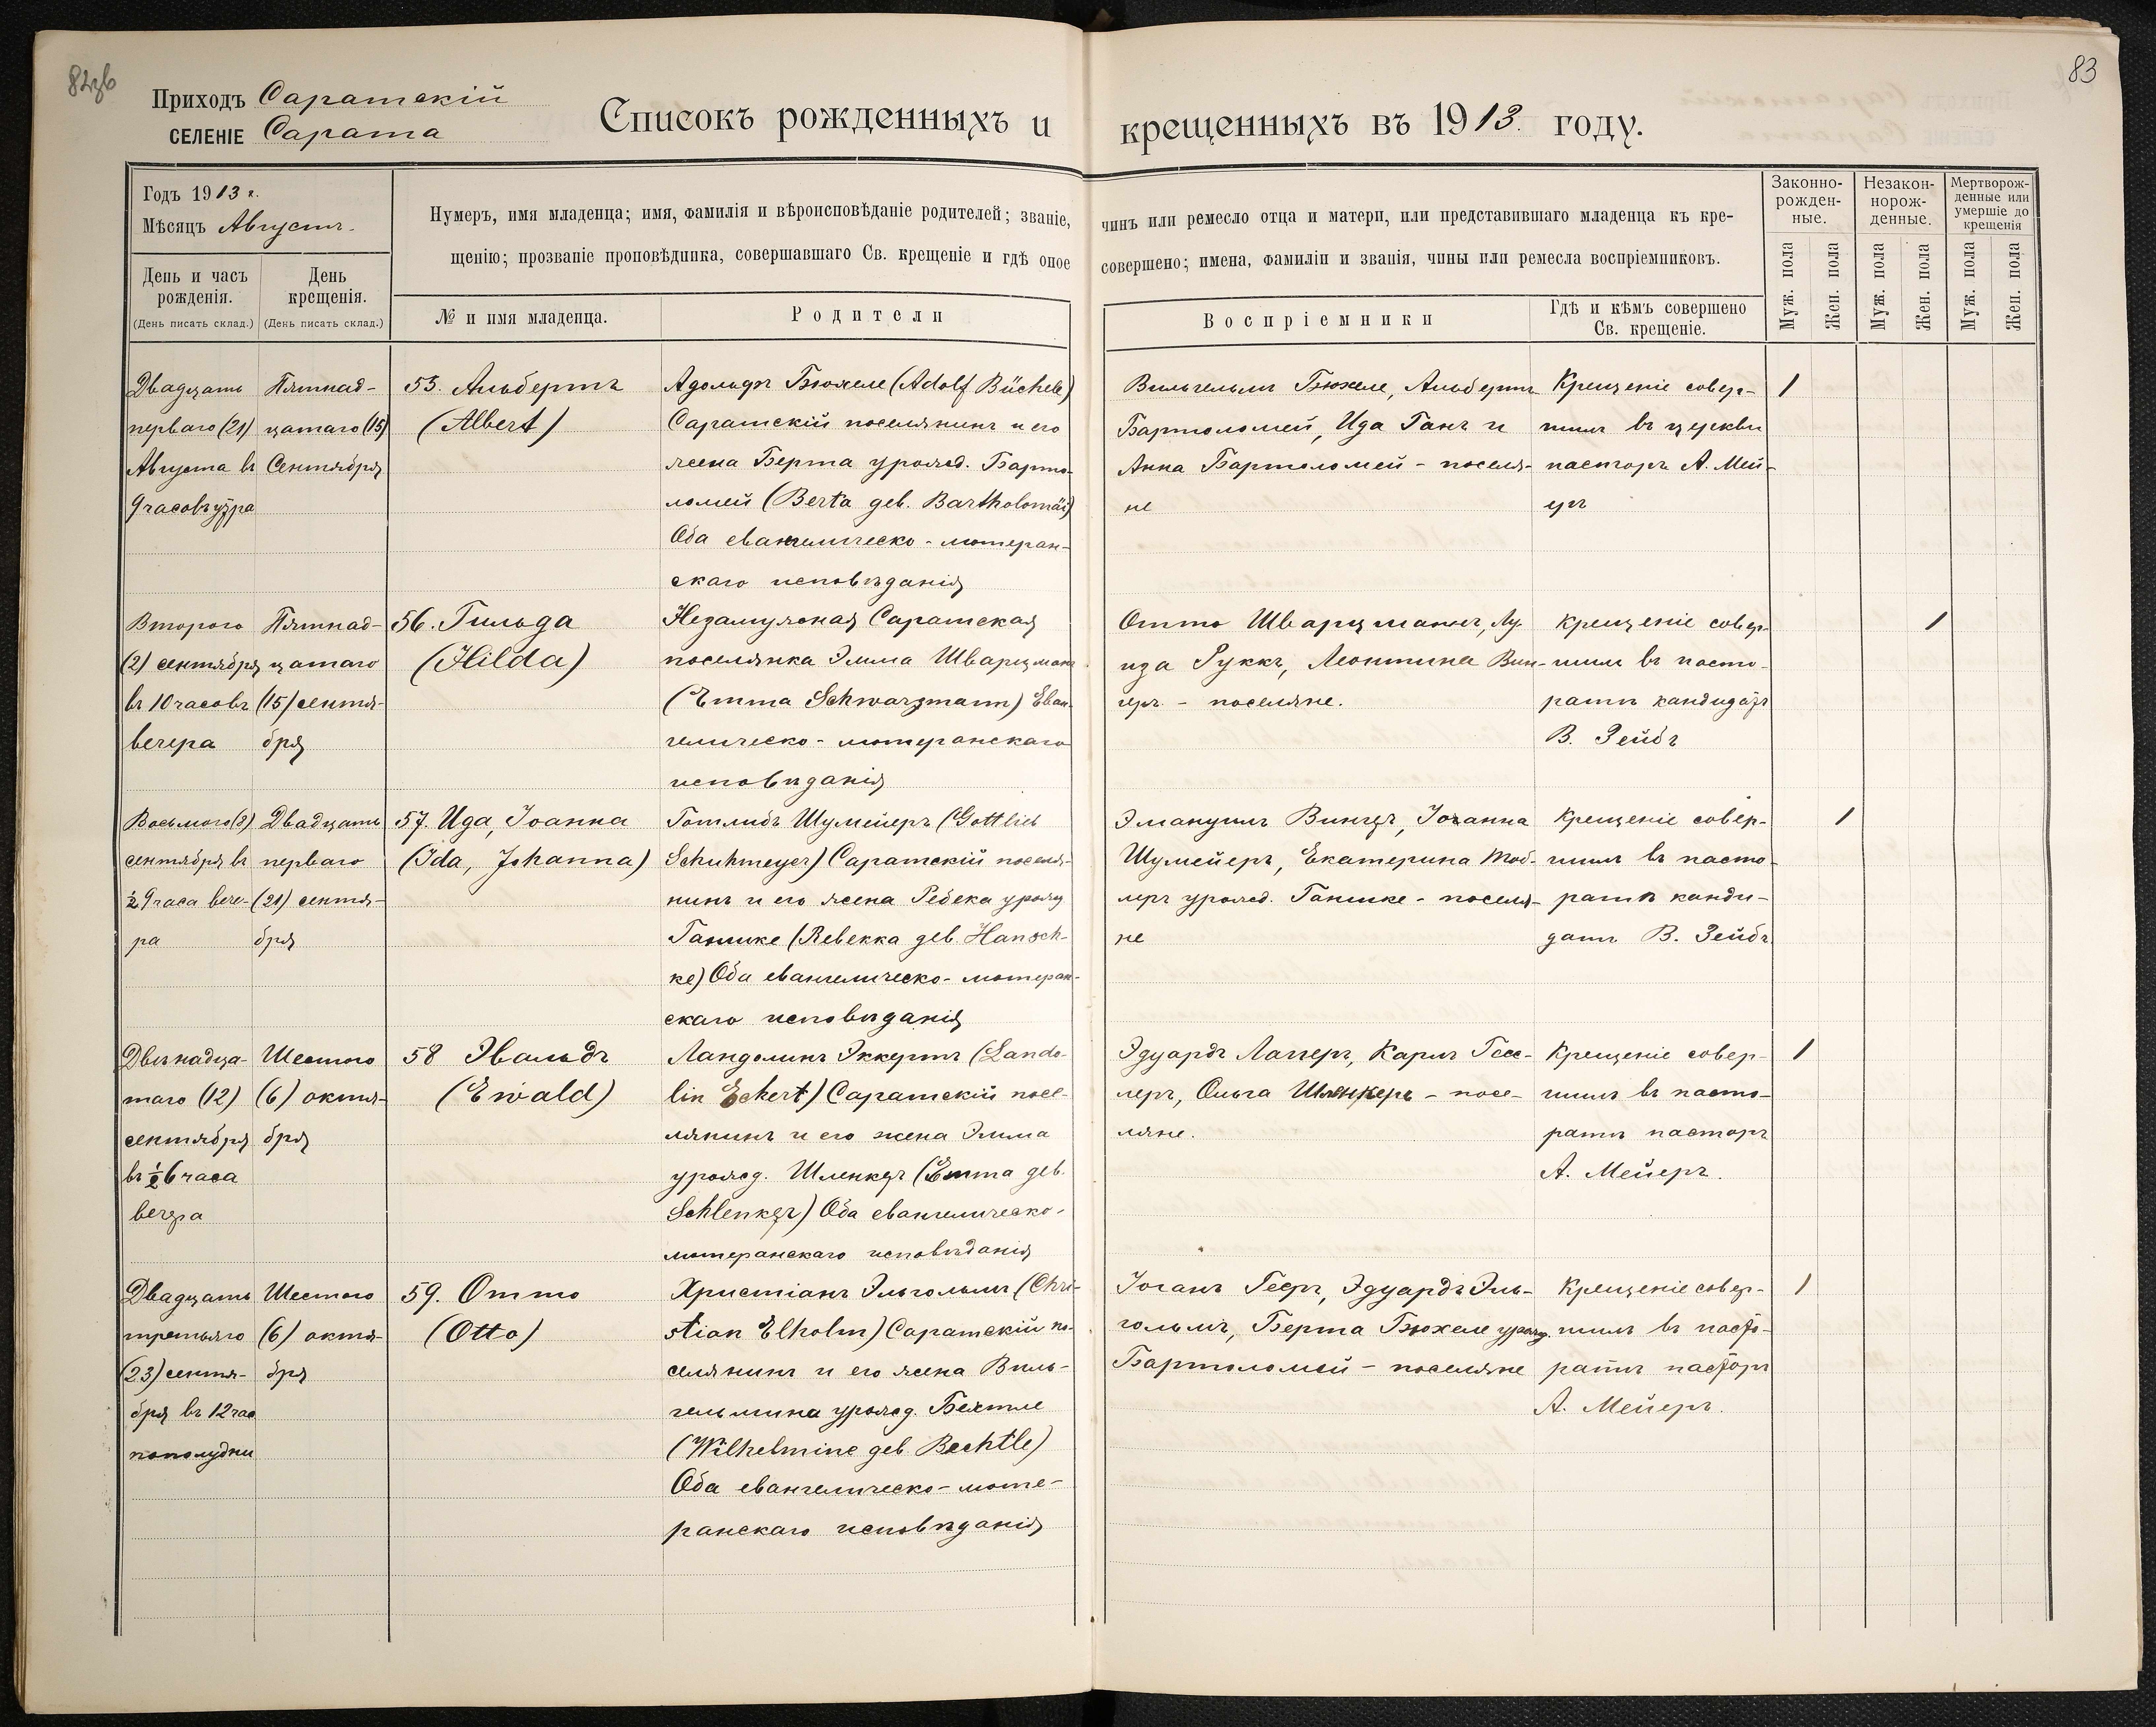 82зв
83
Приходъ Саратскій
СЕЛЕНІЕ Сарата
Списокъ рожденныхъ и крещенныхъ въ 1913. году.
Годъ 1913 г.
Мѣсяцъ Августъ.
День и часъ рожденія.
(День писать склад.)
День крещенія.
(День писать склад.)
Нумеръ, имя младенца; имя, фамилія и вѣроисповѣданіе родителей; званіе, чинъ или ремесло отца и матери, или представившаго младенца къ кре-
щенію; прозваніе проповѣдника, совершавшаго Св. крещеніе и гдѣ оное совершено; имена, фамиліи и званія, чины или ремесла воспріемниковъ.
№ и имя младенца.
Родители
Воспріемники
Гдѣ и кѣмъ совершено
Св. крещеніе.
Законно-
рожден-
ные.
Незакон-
норож-
денные.
Мертворож-
денные или
умершіе до
крещенія
Муж. пола
Жен. пола
Муж. пола
Жен. пола
Муж. пола
Жен. пола
Двадцать
перваго (21)
Августа въ
9 часовъ утра
Пятнад-
цатаго (15)
Сентября
55. Альбертъ
(Albert)
Адольфъ Бюхеле (Adolf Büchele)
Саратскій поселянинъ и его
жена Берта урожд. Барто-
ломей (Berta geb. Bartholomäi)
Оба евангелическо-лютеран-
скаго исповѣданія
Вильгельмъ Бюхеле, Альбертъ
Бартоломей, Ида Ганъ и
Анна Бартоломей - поселя-
не
Крещеніе совер-
шилъ въ церкви
пасторъ А. Мей-
еръ
1
Второго
(2) сентября
въ 10 часовъ
вечера
Пятнад-
цатаго
(15) сентя-
бря
56. Гильда
(Hilda)
Незамужная Саратская
поселянка Эмма Шварцманъ
(Emma Schwarzmann) Еван-
гелическо-лютеранскаго
исповѣданія
Отто Шварцманъ, Лу-
иза Руккъ, Леонтина Вин-
геръ - поселяне.
Крещеніе совер-
шилъ въ пасто-
ратѣ кандидатъ
В. Зейбъ
1
Восьмого (8)
сентября въ
½ 9 часа вече-
ра
Двадцать
перваго
(21) сентя-
бря
57. Ида, Іоанна
(Ida, Johanna)
Готлибъ Шумейеръ (Gottlieb
Schuhmeyer) Саратскій поселя-
нинъ и его жена Ребека урожд
Ганшке (Rebekka geb. Hansch-
ke) Оба евангелическо-лютеран-
скаго исповѣданія
Эмануилъ Вингеръ, Іоганна
Шумейеръ, Екатерина Тоб-
леръ урожд. Ганшке - поселя-
не
Крещеніе совер-
шилъ въ пасто-
ратѣ канди-
датъ В. Зейбъ.
1
Двѣнадца-
таго (12)
сентября
въ ½ 6 часа
вечера
Шестого
(6) октя-
бря
58 Эвальдъ
(Ewald)
Ландолинъ Эккертъ (Lando-
lin Eckert) Саратскій посе-
лянинъ и его жена Эмма
урожд. Шленкеръ (Emma geb.
Schlenker) Оба евангелическо-
лютеранскаго исповѣданія
Эдуардъ Лаггеръ, Карлъ Гесс-
леръ, Ольга Шленкеръ - посе-
ляне.
Крещеніе совер-
шилъ въ пасто-
ратѣ пасторъ
А. Мейеръ.
1
Двадцать
третьяго
(23) сентя-
бря въ 12 час
пополудни
Шестого
(6) октя-
бря
59. Отто
(Otto)
Христіанъ Эльгольмъ (Chri-
stian Elholm) Саратскій по-
селянинъ и его жена Виль-
гельмина урожд. Бехтле
(Wilhelmine geb Bechtle)
Оба евангелическо-люте-
ранскаго исповѣданія
Іоганъ Гееръ, Эдуардъ Эль-
гольмъ, Берта Бюхеле урожд.
Бартоломей - поселяне
Крещеніе совер-
шилъ въ пасто-
ратѣ пасторъ
А. Мейеръ.
1